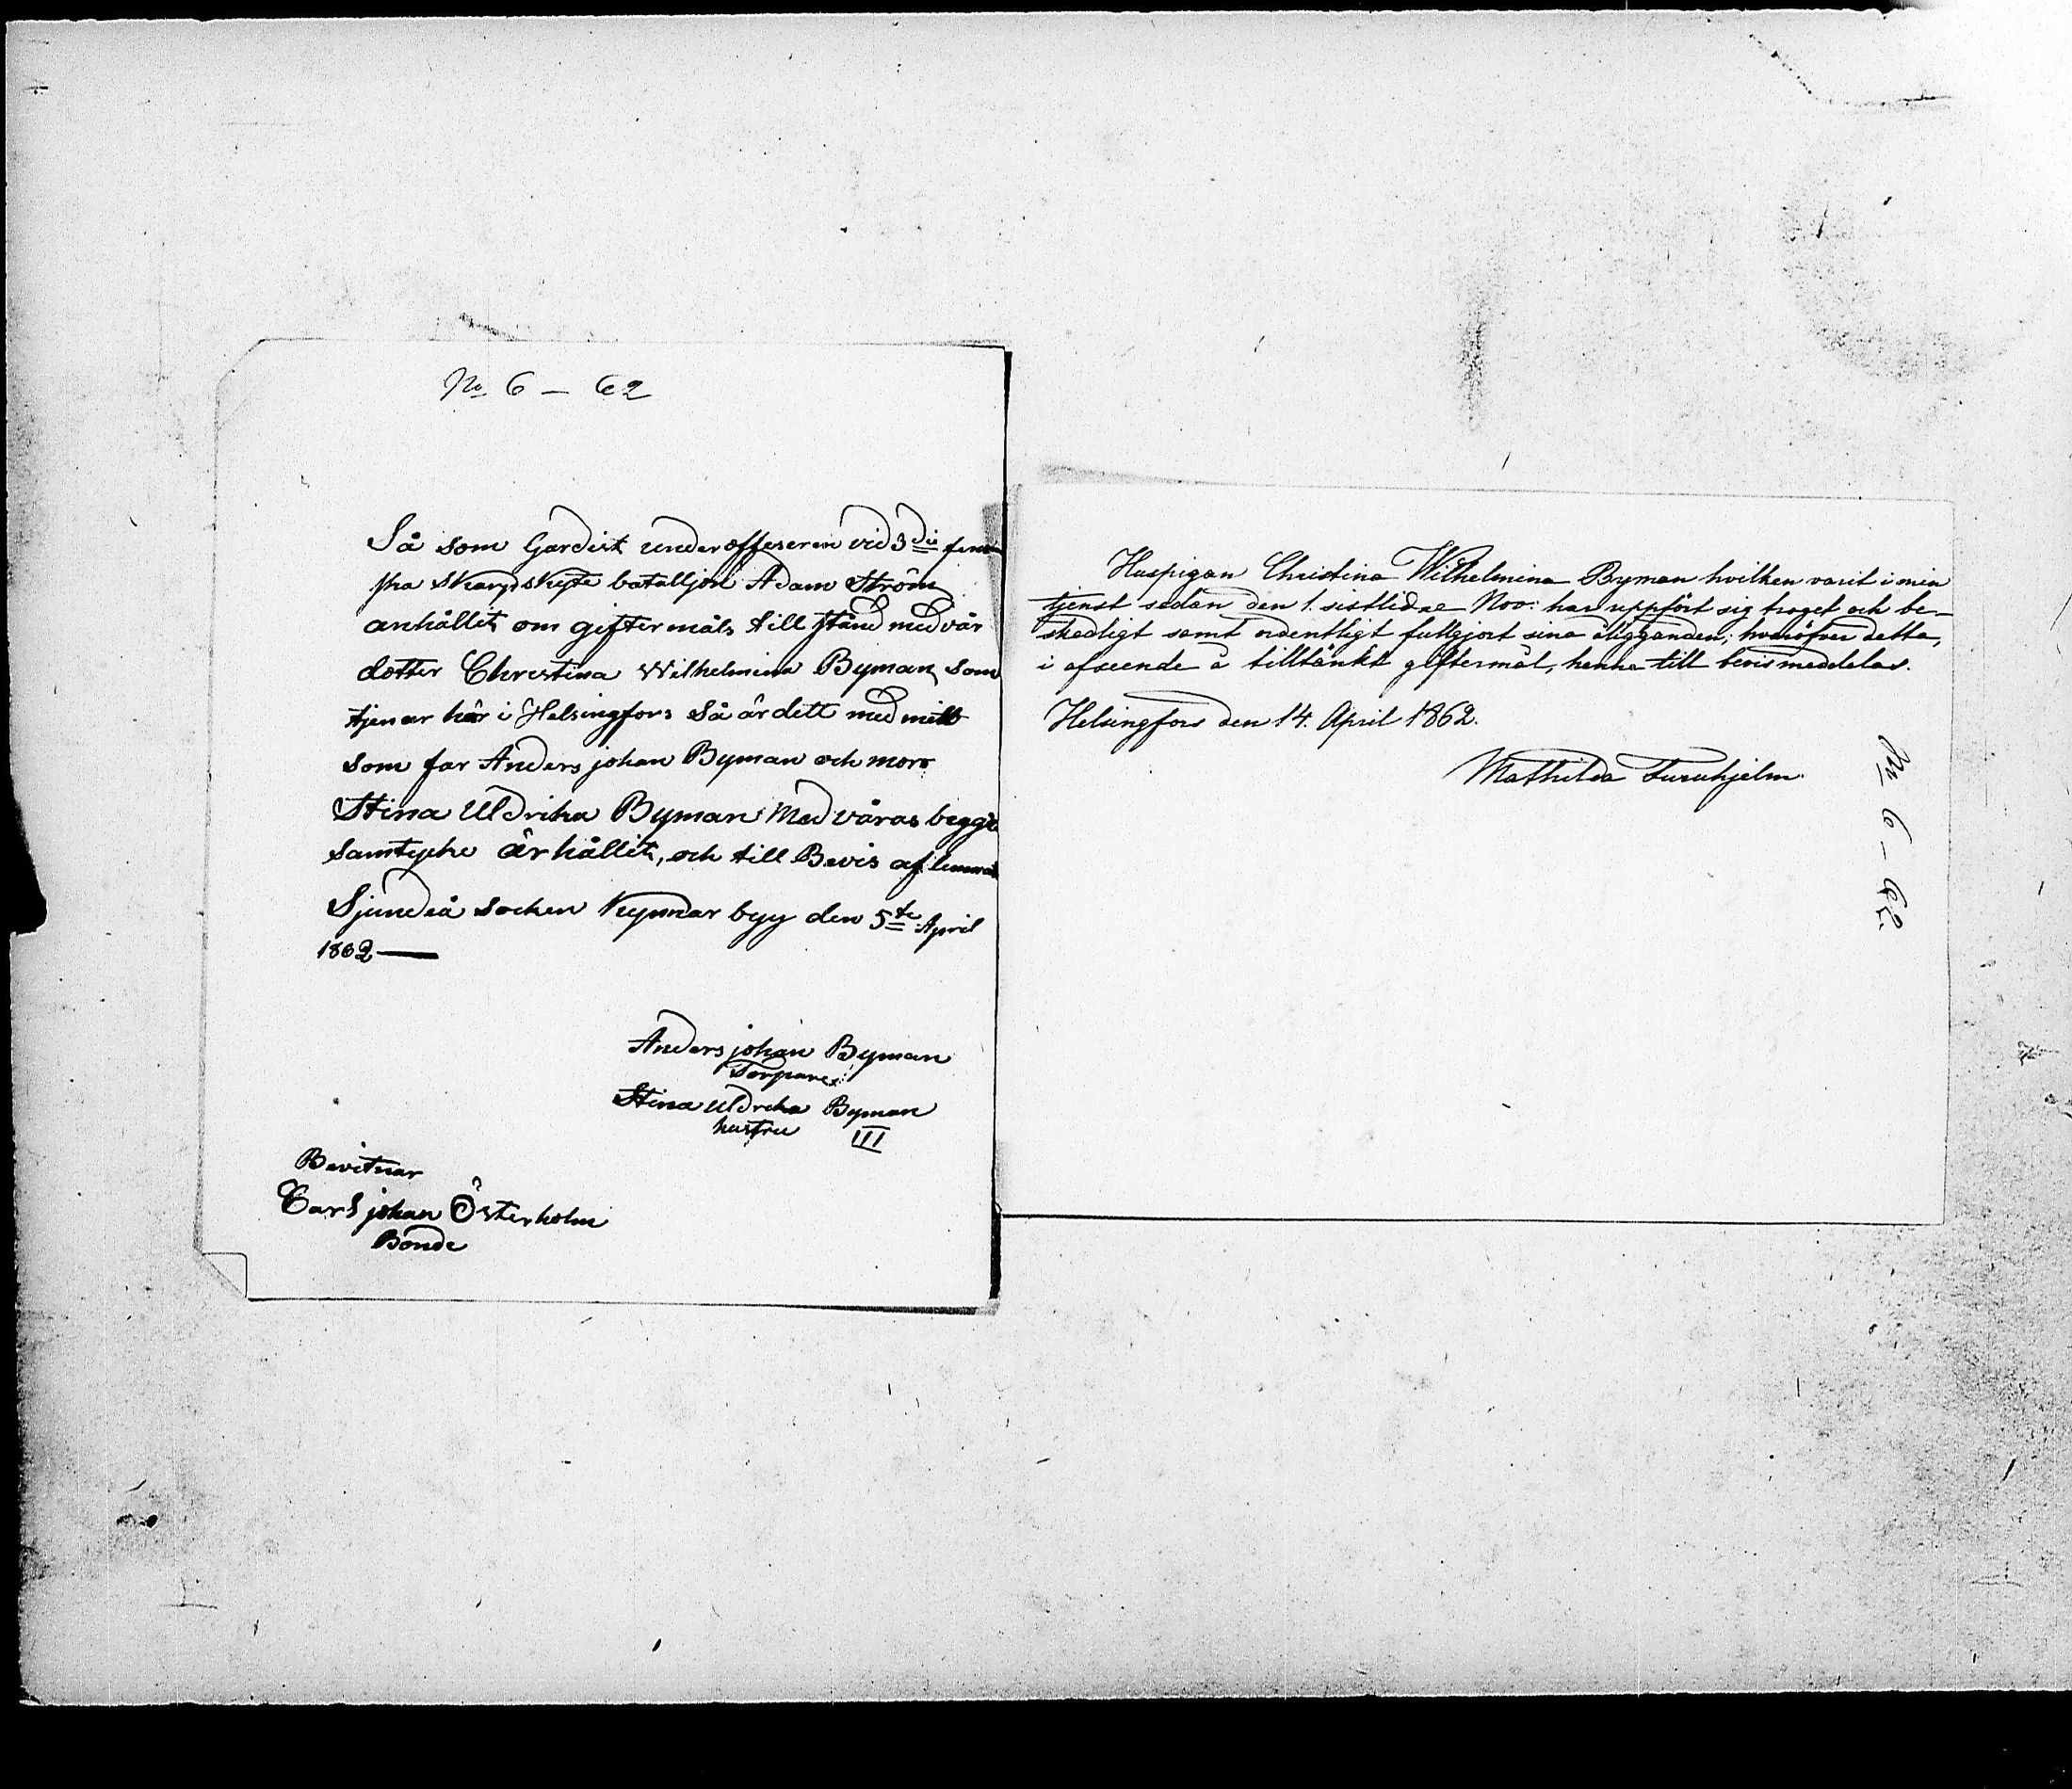 No 6 – 62
Så som Gardist underoffeseren vid 3die fins
ska skarpskytte bataljon Adam Ström
anhållit om giftermåls till stånd med vår
dotter Christina Wilhelmina Byman, som
tjenar här i Helsingfors så är dett med mitt
som far Anders johan Byman och mors
Stina Uldrika Byman Med våras begge
samtycke är hållit, och till Bevis af lemnas
Sjundeå socken byy den 5te April
1862 —
Anders johan Byman
Torpare
Stina Uldreka Byman
hustru III
Bevitnar
Carl johan Österholm
Bonde
Huspigan Christina Wilhelmina Byman hvilken varit i min
tjenst sedan den 1. sistlidne Nov: har uppfört sig troget och be-
skedligt samt ordentligt fullgjort sina åligganden; hvaröfver detta,
i afseende å tilltänkt giftermål, henne till bevis meddelas.
Helsingfors den 14. April 1862.
Mathilda Furuhjelm.
No 6 – 62.